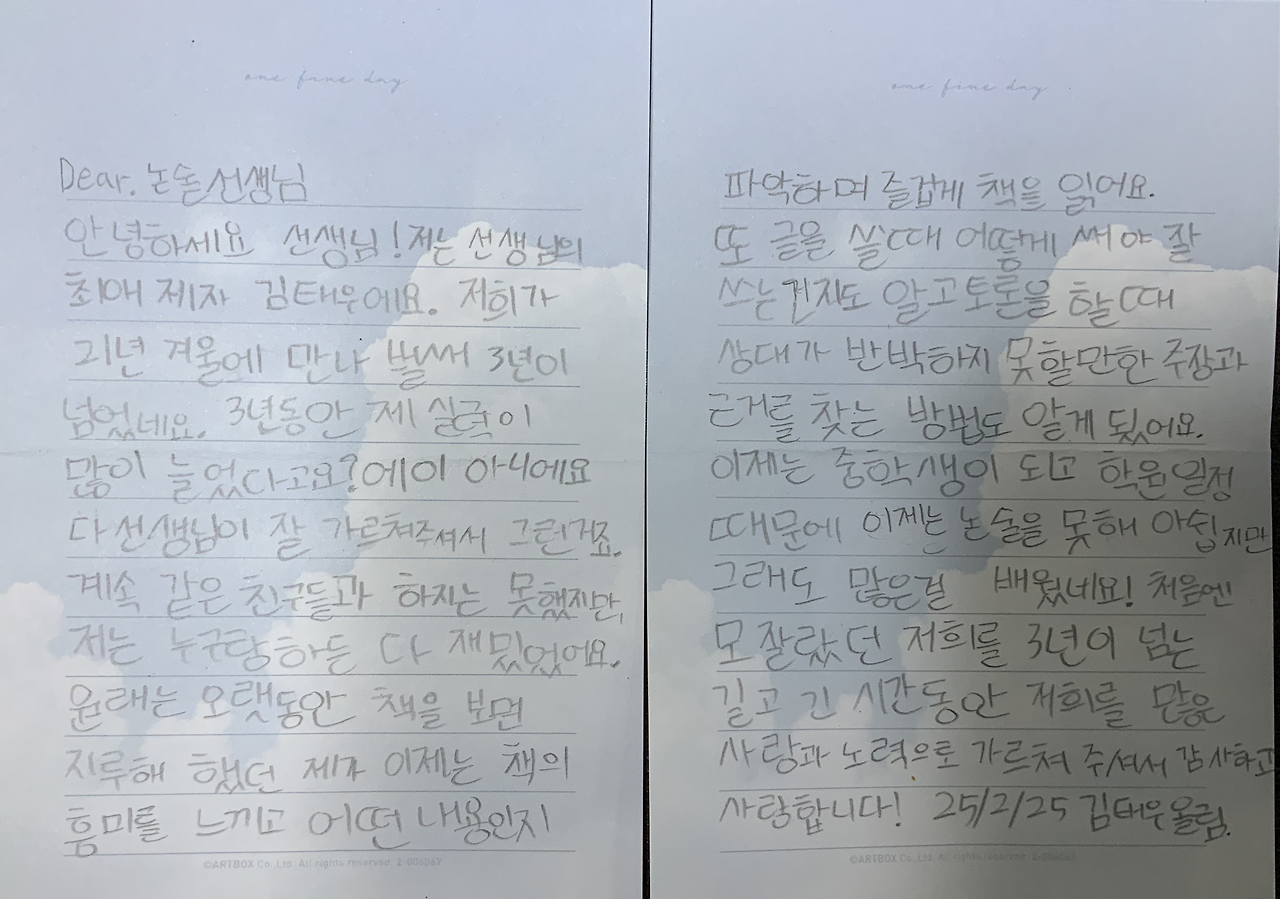 one fine day
Dear. 논술선생님
안녕하세요 선생님! 저는 선생님의
최애 제자 김태우에요. 저희가
21년 겨울에 만나 벌써 3년이
넘었네요. 3년동안 제 실력이
많이 늘었다고요? 에이 아니에요
다 선생님이 잘 가르쳐주셔서 그런거죠.
계속 같은 친구들과 하지는 못했지만,
저는 누구랑하든 다 재밌었어요.
원래는 오랫동안 책을 보면
지루해 했던 제가 이제는 책의
흥미를 느끼고 어떤 내용인지
©ARTBOX Co.,Ltd. All rights reserved.
one fine day
파악하며 즐겁게 책을 읽어요.
또 글을 쓸때 어떻게 써야 잘
쓰는건지도 알고 토론을 할때
상대가 반박하지 못할만한 주장과
근거를 찾는 방법도 알게 됬어요.
이제는 중학생이 되고 학원일정
때문에 이제는 논술을 못해 아쉽지만
그래도 많은걸 배웠네요! 처음엔
모잘랐던 저희를 3년이 넘는
길고 긴 시간동안 저희를 많은
사랑과 노력으로 가르쳐 주셔서 감사하고
사랑합니다! 25/2/25 김태우올림.
©ARTBOX Co.,Ltd. All rights reserved.